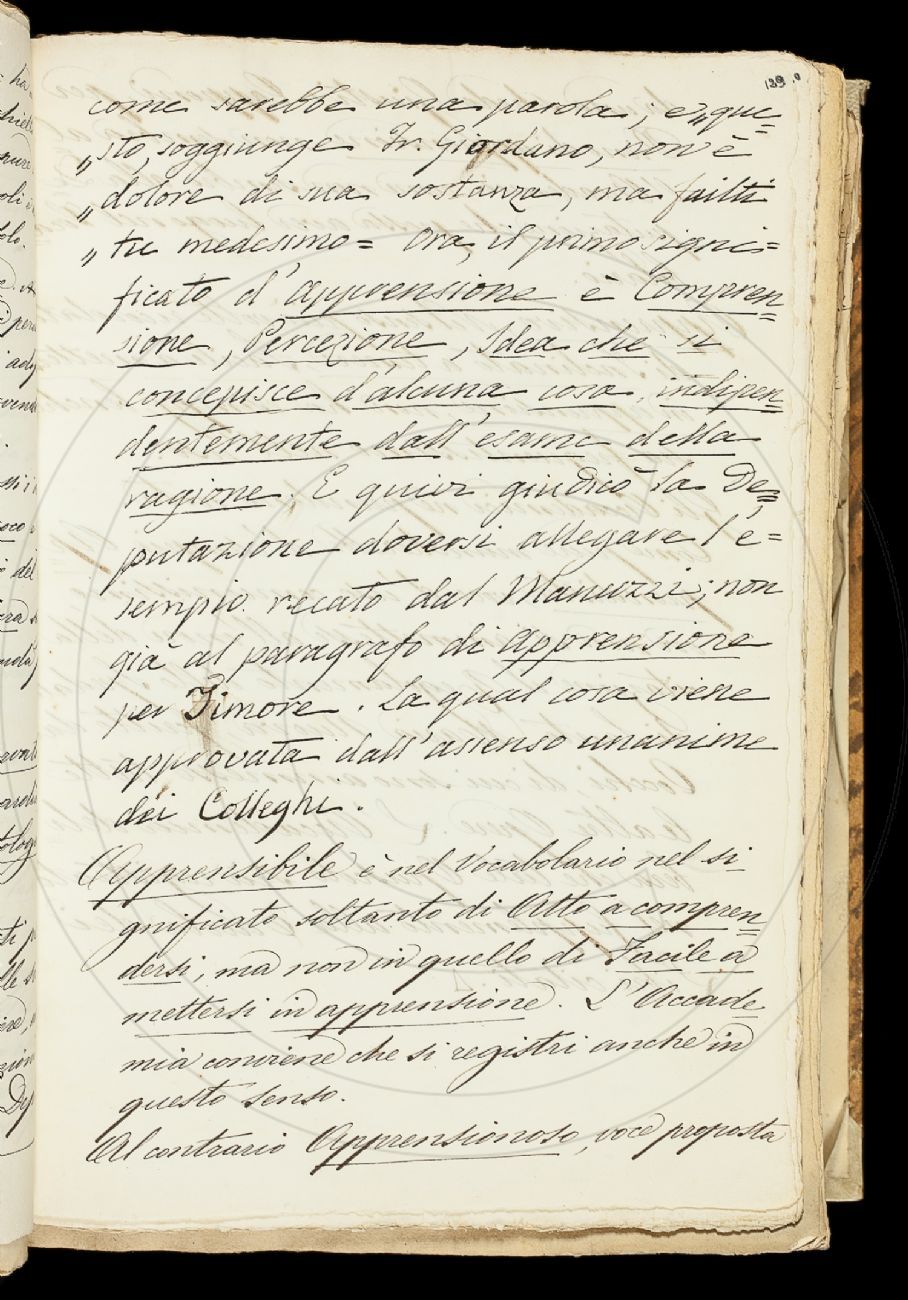 139.
come sarebbe una parola; e „que=
„sto, soggiunge Fr. Giordano, non è
„dolore di sua sostanza, ma failti
„tu medesimo= Ora, il primo signi=
ficato d'Apprensione è Compren=
sione, Percezione, Idea che si
concepisce d'alcuna cosa, indipen=
dentemente dall'esame della
ragione. E quivi giudicò la De=
putazione doversi allegare l'e=
sempio recato dal Manuzzi; non
già al paragrafo di Apprensione
per Timore. La qual cosa viene
approvata dall'assenso unanime
dei Colleghi.
Apprensibile è nel Vocabolario nel si
gnificato soltanto di Atto a compren=
dersi, ma non in quello di Facile a
mettersi in apprensione. L'Accade
mia conviene che si registri anche in
questo senso.
Al contrario Apprensionoso, voce proposta